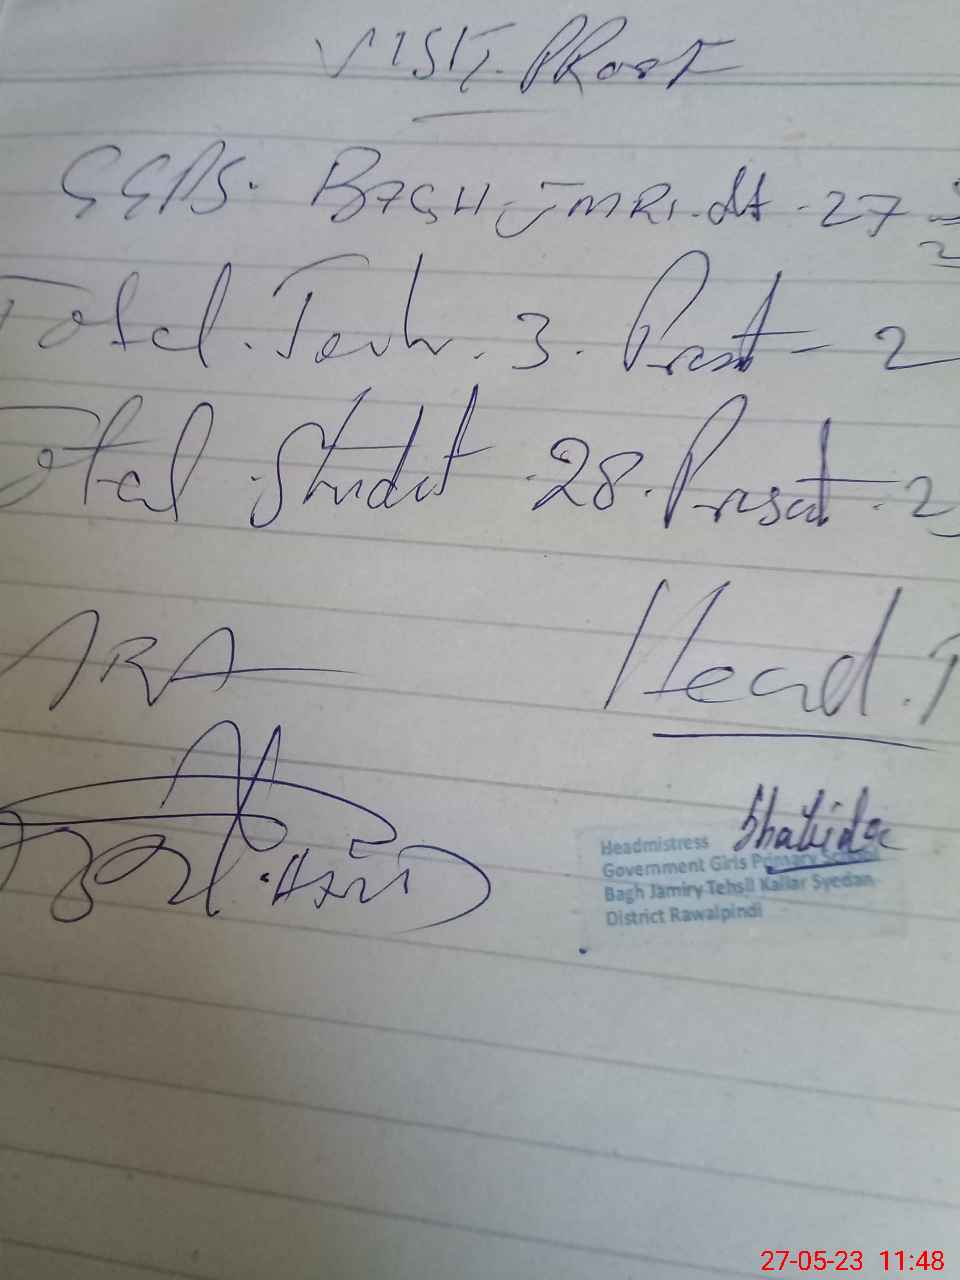 VISIT PRoof
GGPS. BAGH JMRI. dt. 27
Total. Teach. 3. Prsnt - 2
Total Studet 28. Presat - 2
ARA
Head. T
Shahida
Headmistress
Government Girls Primary School
Bagh Jamiry Tehsil Kallar Syedan
District Rawalpindi
27-05-23 11:48